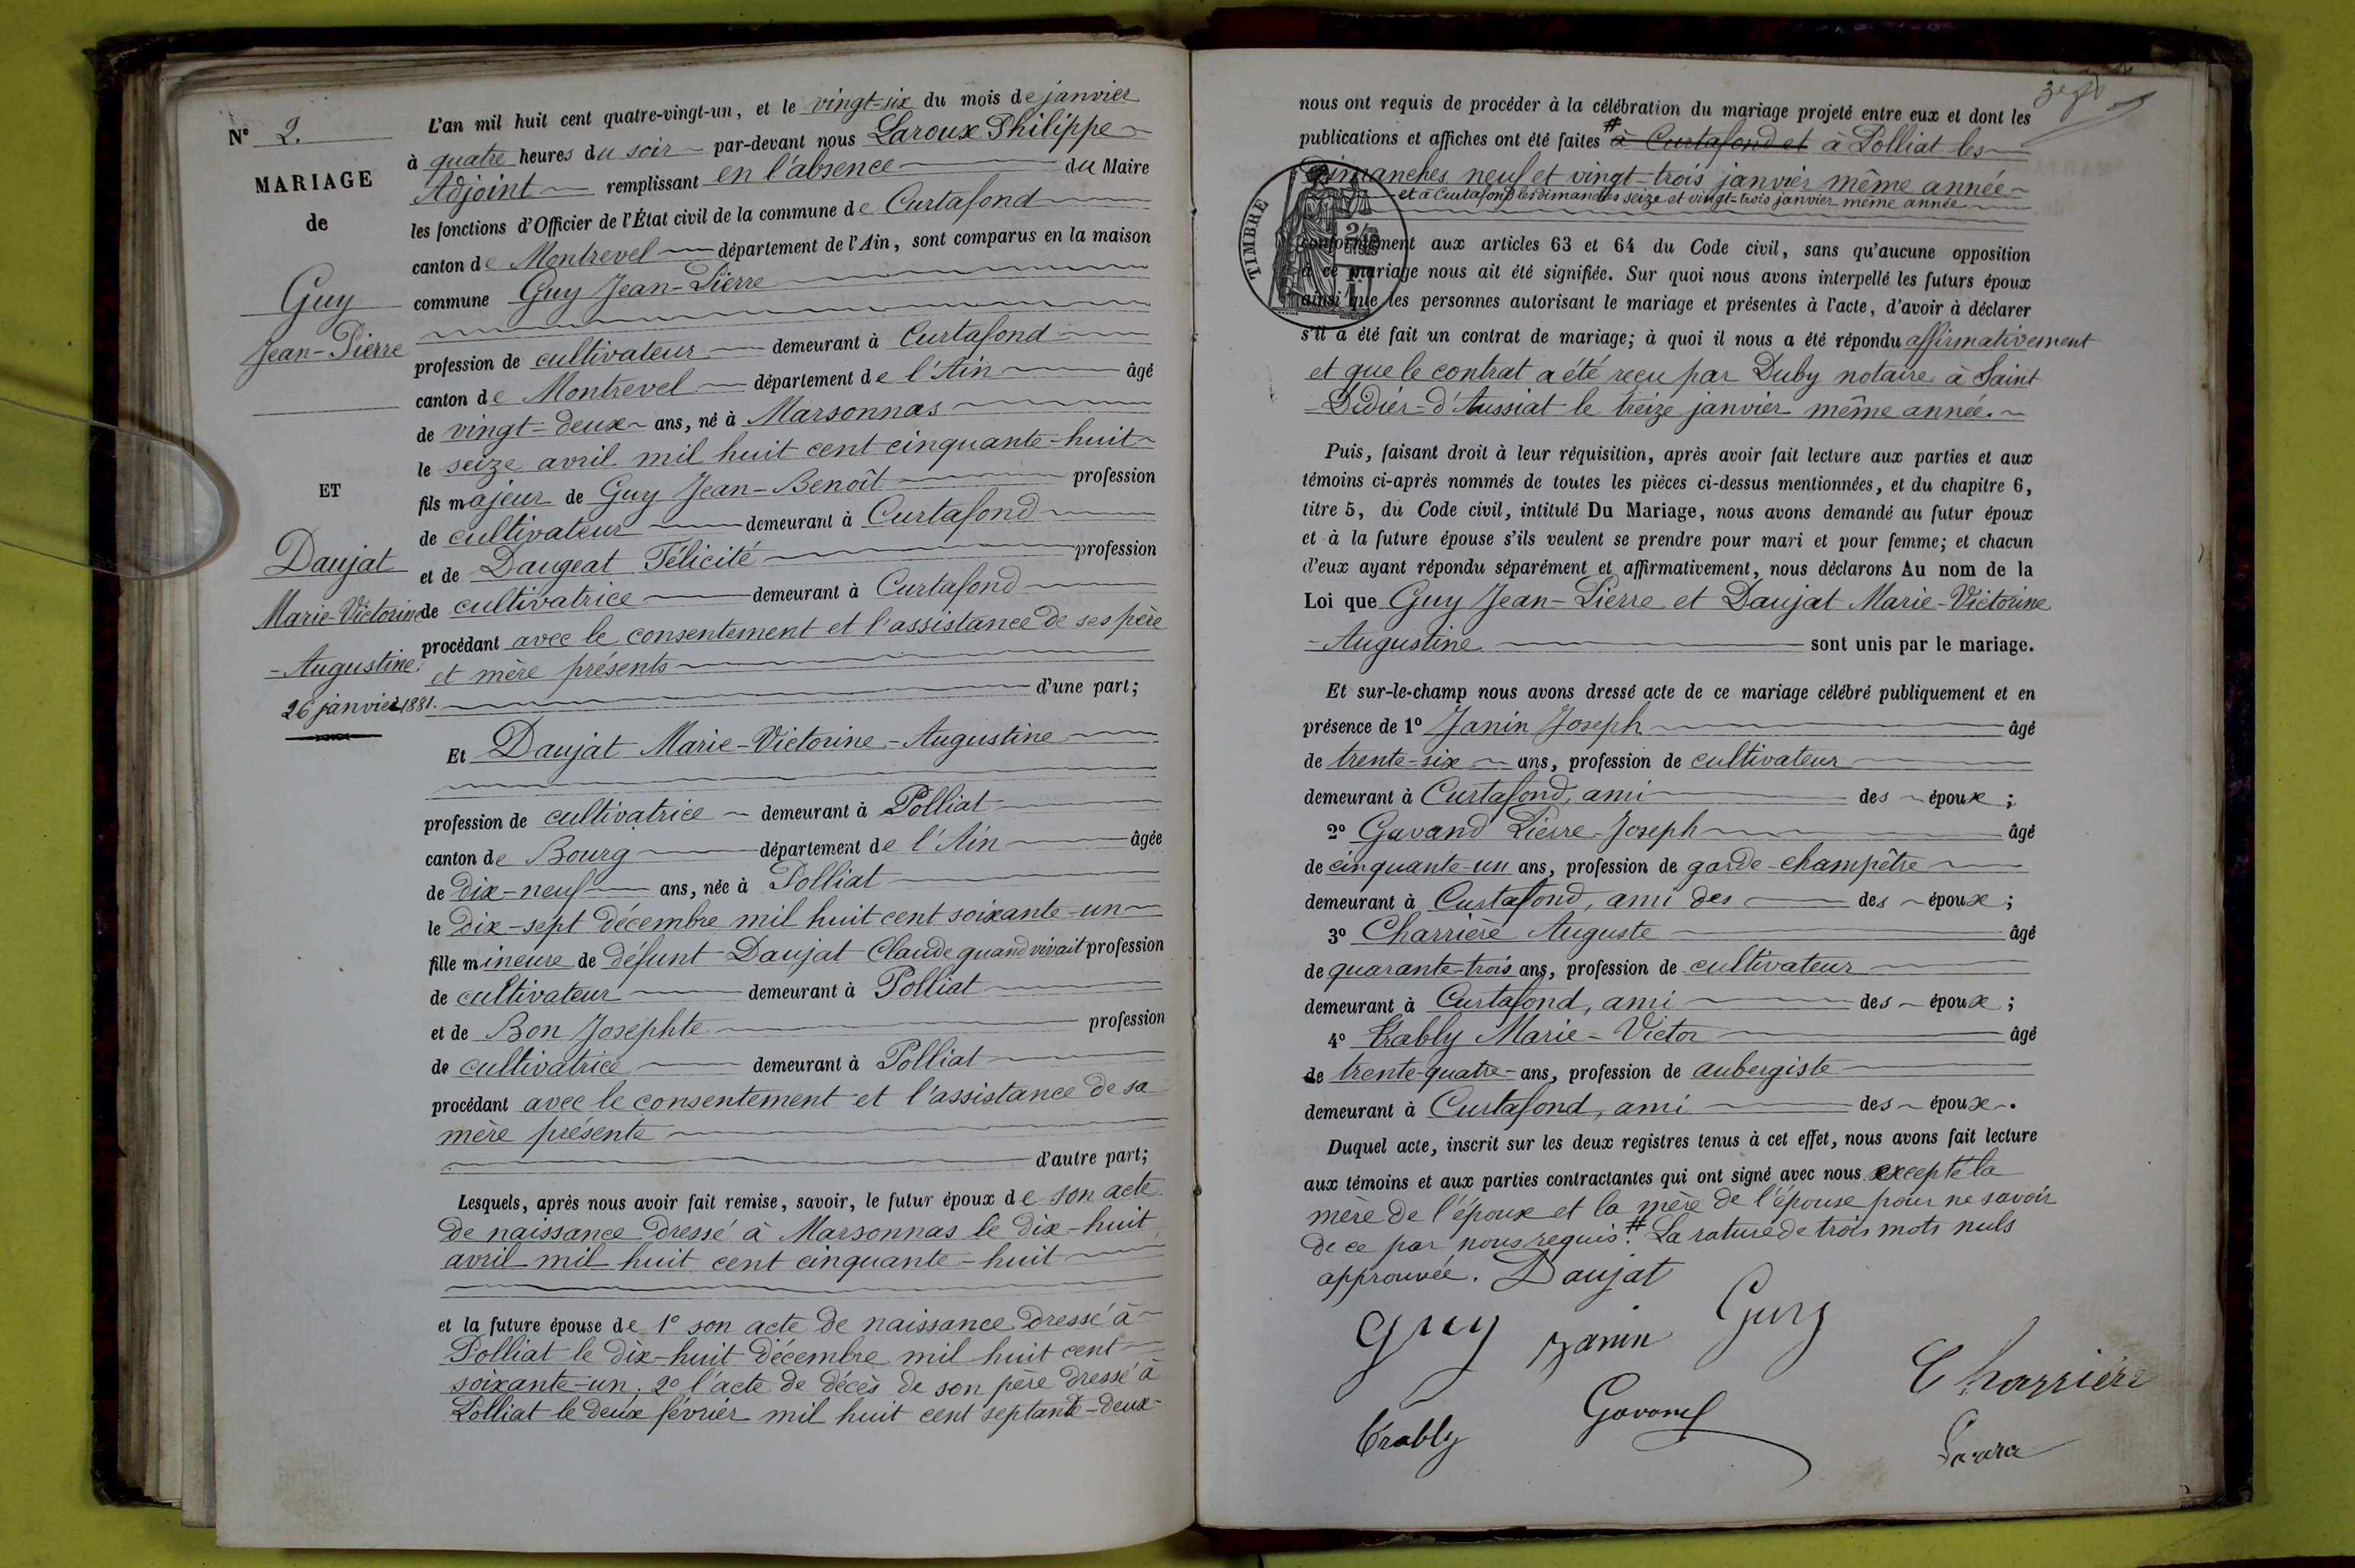 N° 2.
MARIAGE
de
Guy
Jean-Pierre
ET
Daujat
Marie-Victorine
-Augustine.
26 janvier 1881.
L'an mil huit cent quatre-vingt-un, et le vingt-six du mois de janvier
à quatre heures du soir par-devant nous Laroux Philippe
Adjoint remplissant en l'absence du Maire
les fonctions d'Officier de l'État civil de la commune de Curtafond
canton de Montrevel département de l'Ain, sont comparus en la maison
commune Guy Jean-Pierre
profession de cultivateur demeurant à Curtafond
canton de Montrevel département de l'Ain âgé
de vingt-deux ans, né à Marsonnas
le seize avril mil huit cent cinquante-huit
fils majeur de Guy Jean-Benoît profession
de cultivateur demeurant à Curtafond
et de Daugeat Félicité profession
de cultivatrice demeurant à Curtafond
procédant avec le consentement et l'assistance de ses père
et mère présents
d'une part;
Et Daujat Marie-Victorine-Augustine
profession de cultivatrice demeurant à Polliat
canton de Bourg département de l'Ain âgée
de dix-neuf ans, née à Polliat
le dix-sept décembre mil huit cent soixante-un
fille mineure de défunt Daujat Claude quand vivait profession
de cultivateur demeurant à Polliat
et de Bon Josephte profession
de cultivatrice demeurant à Polliat
procédant avec le consentement et l'assistance de sa
mère présente
d'autre part;
Lesquels, après nous avoir fait remise, savoir, le futur époux de son acte
de naissance dressé à Marsonnas le dix-huit
avril mil huit cent cinquante-huit
et la future épouse de 1° son acte de naissance dressé à
Polliat le dix-huit décembre mil huit cent
soixante-un; 2° l'acte de décès de son père dressé à
Polliat le deux février mil huit cent septante-deux
nous ont requis de procéder à la célébration du mariage projeté entre eux et dont les
publications et affiches ont été faites # à Curtafond et à Polliat les
dimanches neuf et vingt-trois janvier même année
et à Curtafond les dimanches seize et vingt-trois janvier même année
TIMBRE
conformément aux articles 63 et 64 du Code civil, sans qu'aucune opposition
à ce mariage nous ait été signifiée. Sur quoi nous avons interpellé les futurs époux
ainsi que les personnes autorisant le mariage et présentes à l'acte, d'avoir à déclarer
s'il a été fait un contrat de mariage; à quoi il nous a été répondu affirmativement
et que le contrat a été reçu par Duby notaire à Saint
-Didier-d'Aussiat le treize janvier même année.
Puis, faisant droit à leur réquisition, après avoir fait lecture aux parties et aux
témoins ci-après nommés de toutes les pièces ci-dessus mentionnées, et du chapitre 6,
titre 5, du Code civil, intitulé Du Mariage, nous avons demandé au futur époux
et à la future épouse s'ils veulent se prendre pour mari et pour femme; et chacun
d'eux ayant répondu séparément et affirmativement, nous déclarons Au nom de la
Loi que Guy Jean-Pierre et Daujat Marie-Victorine
-Augustine sont unis par le mariage.
Et sur-le-champ nous avons dressé acte de ce mariage célébré publiquement et en
présence de 1° Janin Joseph âgé
de trente-six ans, profession de cultivateur
demeurant à Curtafond, ami des époux;
2° Gavand Pierre-Joseph âgé
de cinquante-un ans, profession de garde-champêtre
demeurant à Curtafond, ami des des époux;
3° Charrière Auguste âgé
de quarante-trois ans, profession de cultivateur
demeurant à Curtafond, ami des époux;
4° Crably Marie-Victor âgé
de trente-quatre ans, profession de aubergiste
demeurant à Curtafond, ami des époux.
Duquel acte, inscrit sur les deux registres tenus à cet effet, nous avons fait lecture
aux témoins et aux parties contractantes qui ont signé avec nous excepté la
mère de l'époux et la mère de l'épouse pour ne savoir
de ce par nous requis. # La rature de trois mots nuls
approuvée. Daujat
Guy Janin Guy
Charrière
Crably Gavand